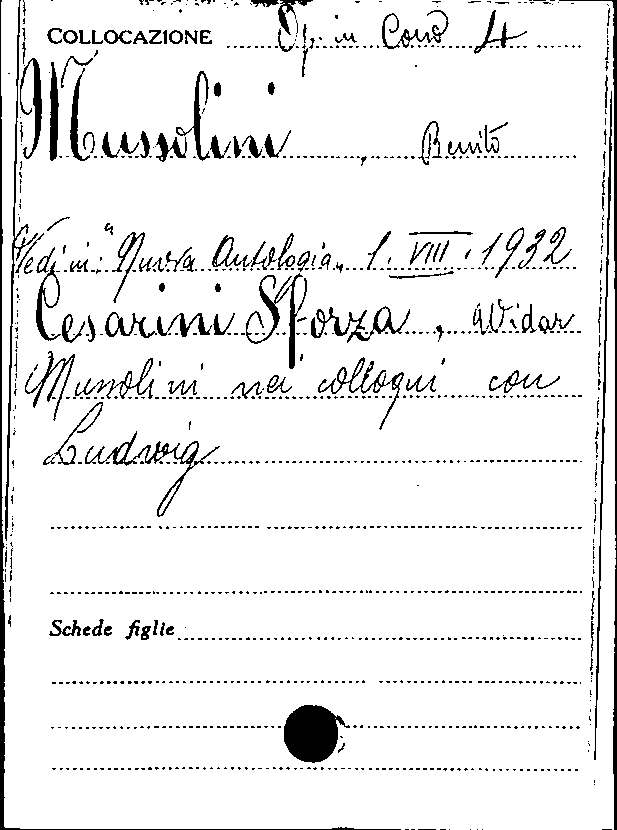 COLLOCAZIONE Op. in Cons 4
Mussolini, Benito
Vedi in: "Nuova Antologia„ 1. VIII. 1932
Cesarini Sforza, Widar
Mussolini nei colloqui con
Ludwig
Schede figlie